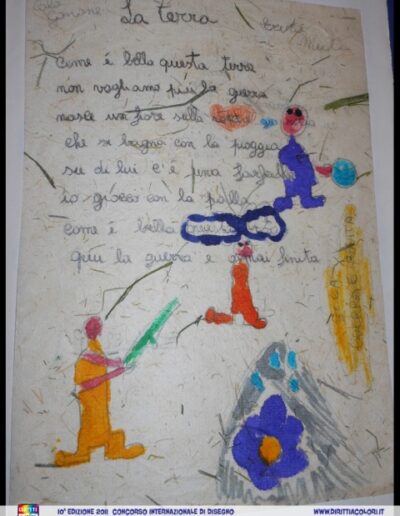 La terra
Come è bella questa terra
non vogliamo più la guerra
nasce un fiore sulla
che si bagna con la pioggia
su di lui c'è una farfalla
io gioco con la palla
come è bella
qui la guerra è ormai finita
10ª EDIZIONE 2011 CONCORSO INTERNAZIONALE DI DISEGNO
WWW.DIRITTIACOLORI.IT